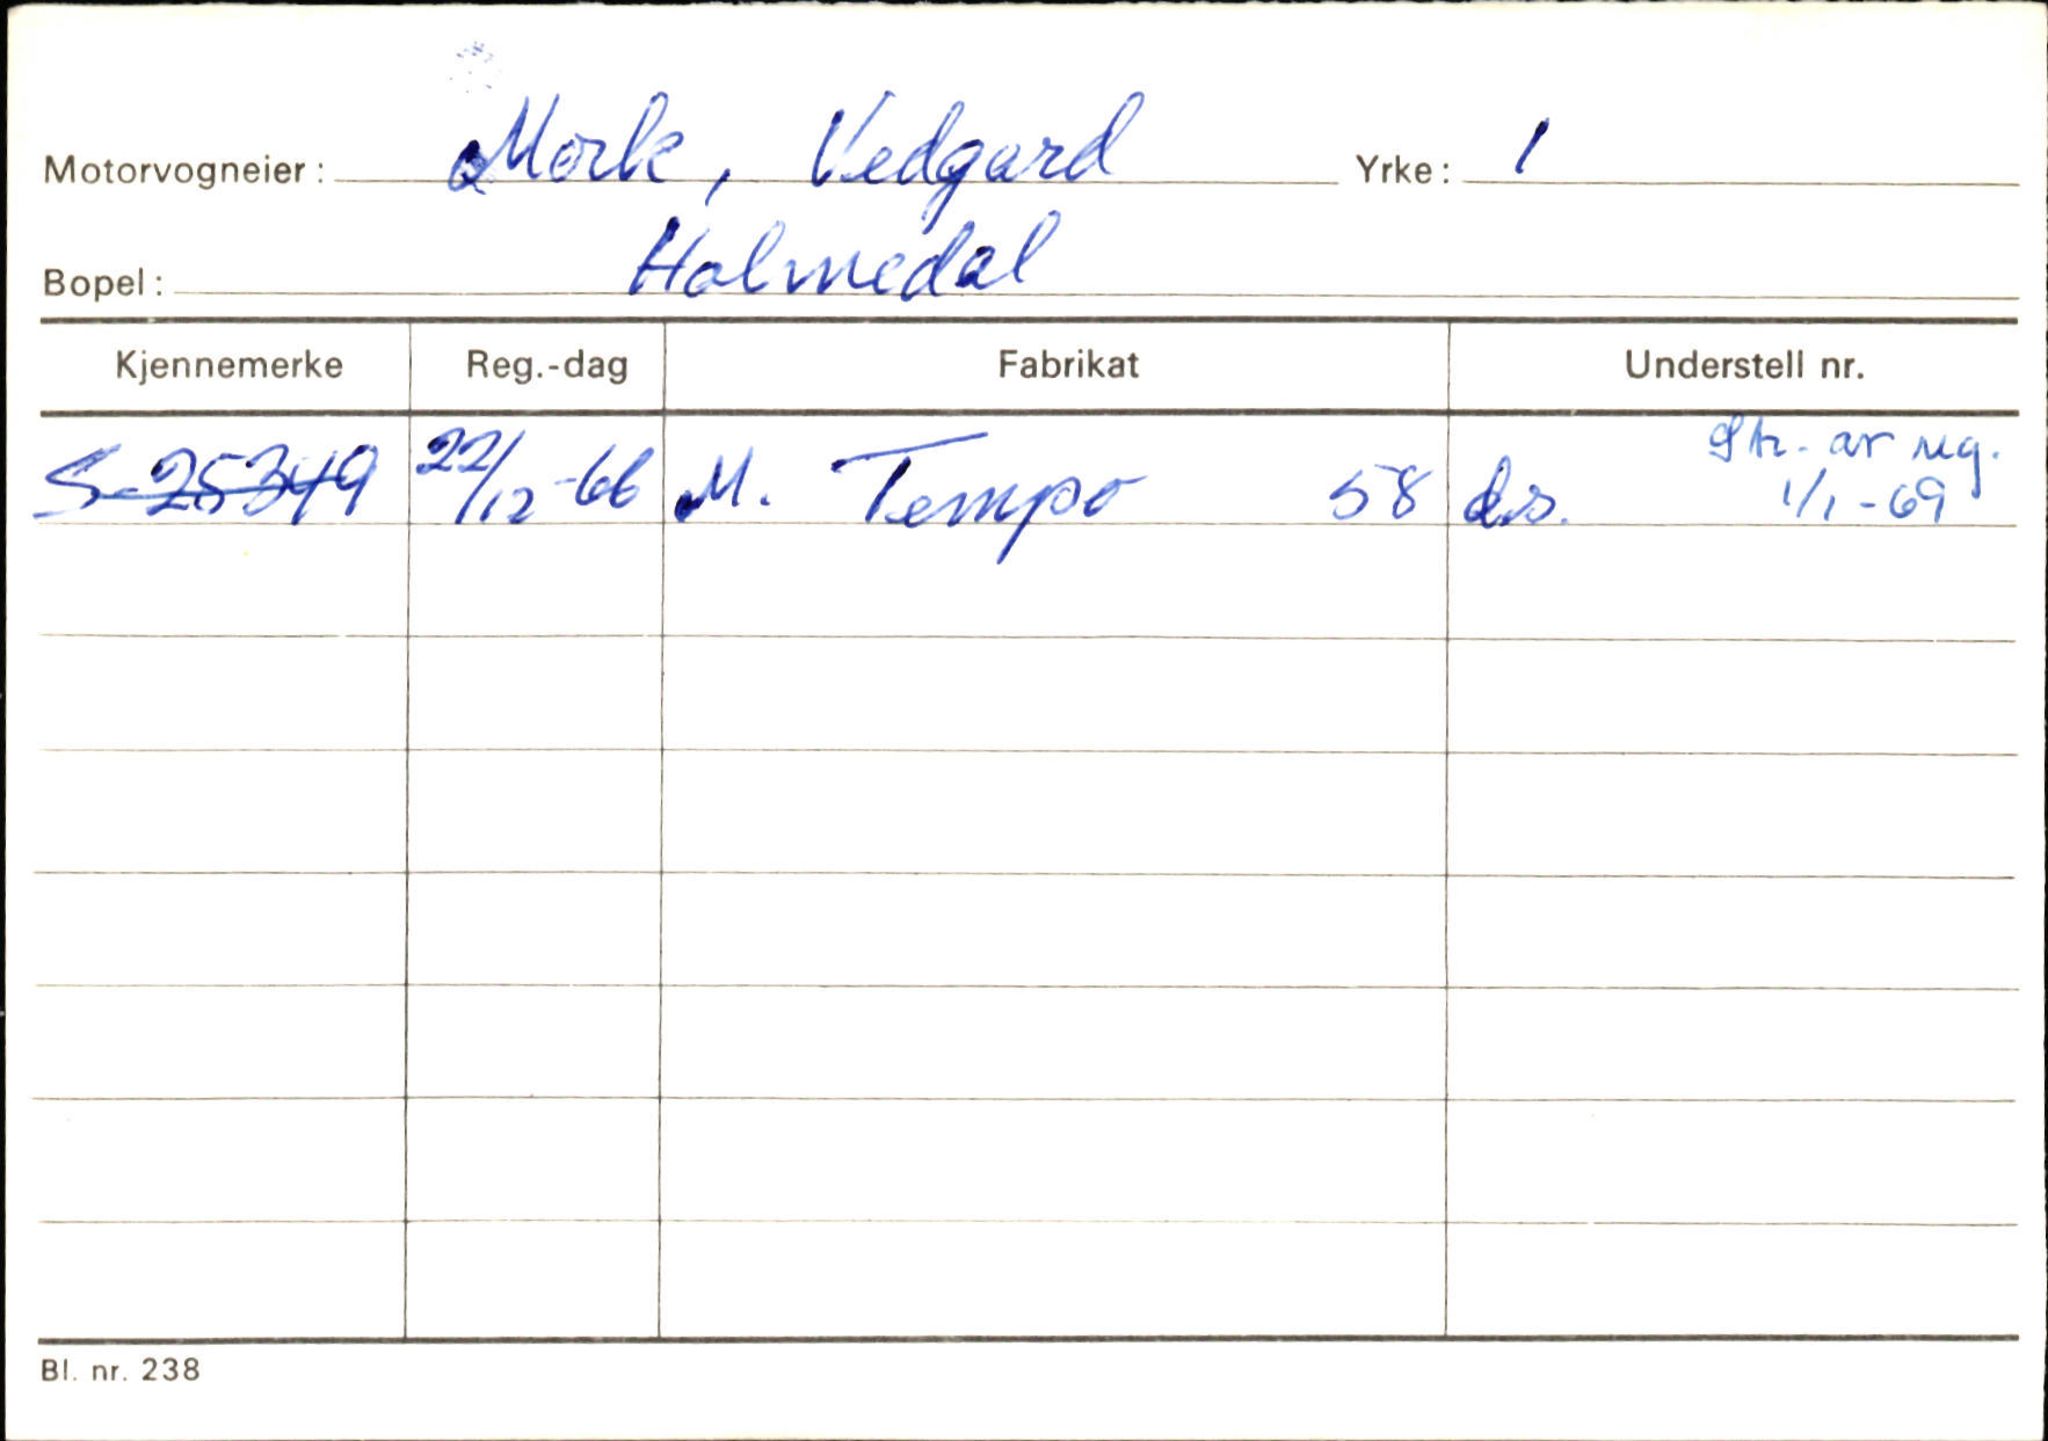 Motorvogneier: Mörk, Vedgard Yrke: 1
Bopel: Holmedal
Kjennemerke Reg.-dag Fabrikat Understell nr.
S-25349 22/12-66 M. Tempo 58 ds. Str. av reg.
1/1-69
Bl. nr. 238